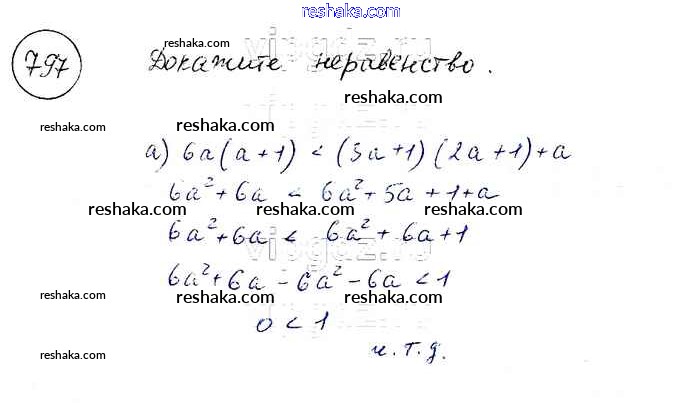 reshaka.com
797 Докажите неравенство.
reshaka.com
reshaka.com
reshaka.com reshaka.com reshaka.com
а) 6a(a+1) < (3a+1)(2a+1)+a
6a²+6a < 6a²+5a+1+a
reshaka.com reshaka.com reshaka.com
6a²+6a < 6a²+6a+1
6a²+6a-6a²-6a<1
reshaka.com reshaka.com reshaka.com
0<1
reshaka.com
ч.т.д.
reshaka.com